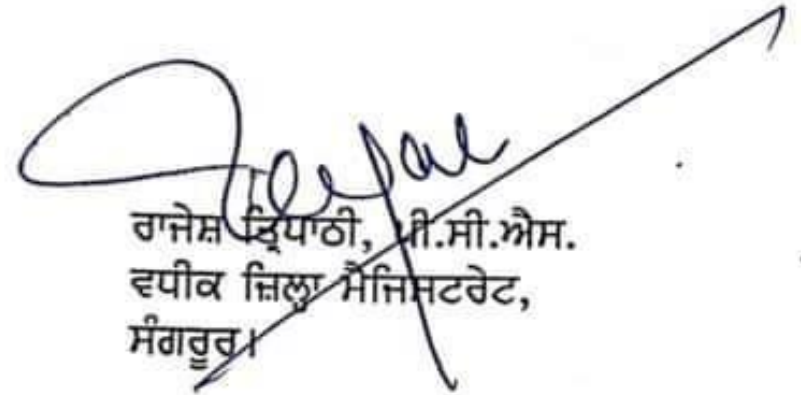 ਰਾਜੇਸ਼ ਤ੍ਰਿਪਾਠੀ, ਪੀ.ਸੀ.ਐਸ.
ਵਧੀਕ ਜ਼ਿਲ੍ਹਾ ਮੈਜਿਸਟਰੇਟ,
ਸੰਗਰੂਰ।